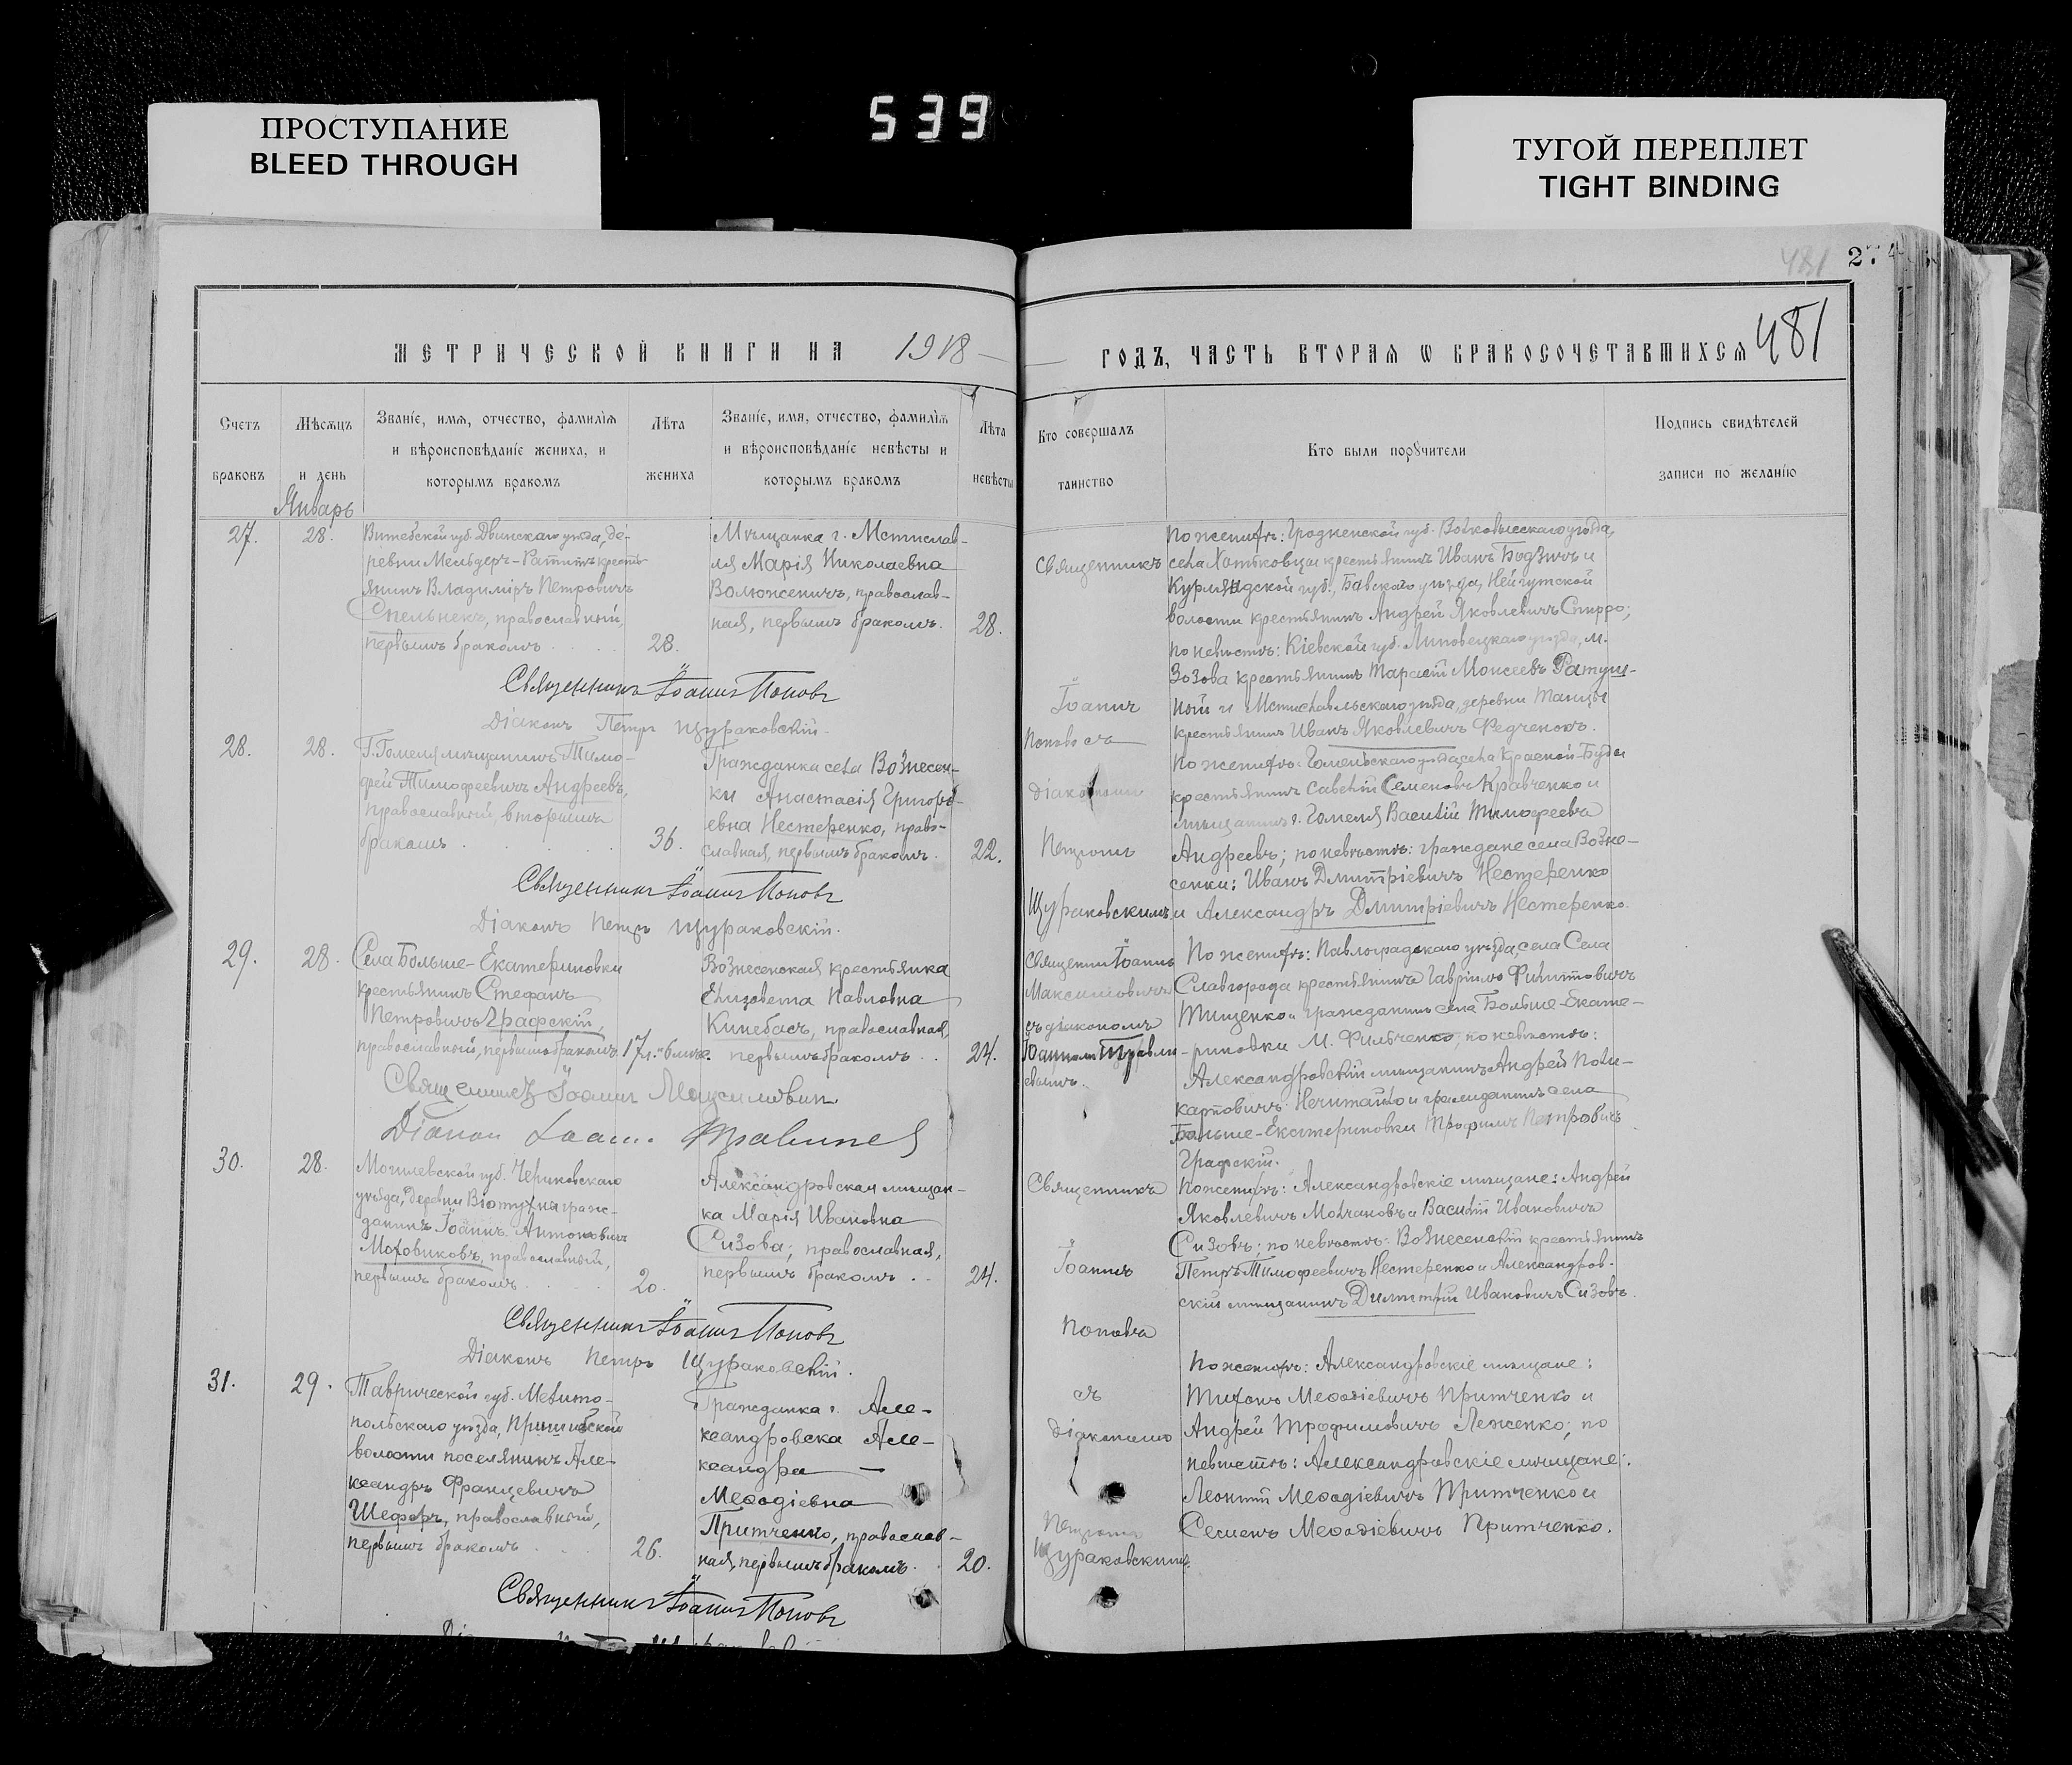 539
ПРОСТУПАНИЕ
BLEED THROUGH
ТУГОЙ ПЕРЕПЛЕТ
TIGHT BINDING
481
274
МЕТРИЧЕСКОЙ КНИГИ НА 1918
Счетъ
браковъ
Мѣсяцъ
и день
Январь
Званіе, имя, отчество, фамилія
и вѣроисповѣданіе жениха, и
которымъ бракомъ
Лѣта
жениха
Званіе, имя, отчество, фамилія
и вѣроисповѣданіе невѣсты и
которымъ бракомъ
Лѣта
невѣсты
27.
28.
Витебской губ. Двинскаго уѣзда, де-
ревни крестья-
нинъ Владиміръ Петровичъ
Спельнекъ, православный,
первымъ бракомъ
28.
Мѣщанка г. Мстислав-
ля Марія Николаевна
Волюженичъ, православ-
ная, первымъ бракомъ.
28.
Священникъ Іоаннъ Поповъ
Діаконъ Петръ Щураковскій.
28.
28.
Г. Гомеля мѣщанинъ Тимо-
фей Тимофеевичъ Андреевъ,
православный, вторымъ
бракомъ
36.
Гражданка села Вознесен-
ки Анастасія Григорь-
евна Нестеренко, право-
славная, первымъ бракомъ.
22.
Священникъ Іоаннъ Поповъ
Діаконъ Петръ Щураковскій.
29.
28.
Села Больше-Екатериновки
крестьянинъ Стефанъ
Петровичъ Графскій,
православный, первымъ бракомъ
17 л. и 6 мѣс.
Вознесенская крестьянка
Елизовета Павловна
Кинебасъ, православная,
первымъ бракомъ
24.
Священникъ Іоаннъ Максимович
Діакон Іоанн
30.
28.
Могилевской губ. Чериковскаго
уѣзда, деревни граж-
данинъ Іоаннъ Антоновичъ
Моховиковъ, православный,
первымъ бракомъ
20.
Александровская мѣщан-
ка Марія Ивановна
Сизова; православная,
первымъ бракомъ
24.
Священникъ Іоаннъ Поповъ
Діаконъ Петръ Щураковскій.
31.
29.
Таврической губ. Мелито-
польскаго уѣзда, Пришибской
волости поселянинъ Але-
ксандръ Францевичъ
Шеферъ, православный,
первымъ бракомъ
26.
Гражданка г. Але-
ксандровска Але-
ксандра
Меѳодіевна
Притченко, православ-
ная, первымъ бракомъ.
20.
Священникъ Іоаннъ Поповъ
481
ГОДЪ, ЧАСТЬ ВТОРАЯ Ѡ БРАКОСОЧЕТАВШИХСЯ
Кто совершалъ
таинство
Кто были порꙋчители
Подпись свидѣтелей
записи по желанію
Священникъ
Іоаннъ
Поповъ съ
діакономъ
Петромъ
Щураковскимъ
По женихѣ: Гродненской губ. Волковысскаго уѣзда,
села Хотьковцы крестьянинъ Иванъ Бодзичъ и
Курляндской губ., Бавскаго уѣзда, Нейгутской
волости крестьянинъ Андрей Яковлевичъ Спирро;
по невѣстѣ: Кіевской губ. Липовецкаго уѣзда, м.
Зозова крестьянинъ Тарасій Моисеевъ Ратуш-
ной и Мстиславльскаго уѣзда, деревни Танцы
крестьянинъ Иванъ Яковлевичъ Федченокъ.
По женихѣ: Гомельскаго уѣзда, села Красной-Буды
крестьянинъ Савелій Семеновъ Кравченко и
мѣщанинъ г. Гомеля Василій Тимофеевъ
Андреевъ; по невѣстѣ: граждане села Возне-
сенки: Иванъ Дмитріевичъ Нестеренко
и Александръ Дмитріевичъ Нестеренко.
Священникъ Іоаннъ
Максимовичъ
съ діакономъ
По женихѣ: Павлоградскаго уѣзда, села Села
Славгорода крестьянинъ Гавріилъ Филипповичъ
Тищенко и гражданинъ села Больше-Екате-
риновки М. Фильченко; по невѣстѣ:
Александровскій мѣщанинъ Андрей Поли-
карповичъ Нечитайло и гражданинъ села
Больше-Екатериновки Трофимъ Петровичъ
Графскій.
Священникъ
Іоаннъ
Поповъ
съ
діакономъ
Петромъ
Щураковскимъ
По женихѣ: Александровскіе мѣщане: Андрей
Яковлевичъ Молчановъ и Василій Ивановичъ
Сизовъ; по невѣстѣ: Вознесенскій крестьянинъ
Петръ Тимофеевичъ Нестеренко и Александров-
скій мѣщанинъ Димитрій Ивановичъ Сизовъ.
По женихѣ: Александровскіе мѣщане:
Тихонъ Меѳодіевичъ Притченко и
Андрей Трофимовичъ Леженко; по
невѣстѣ: Александровскіе мѣщане:
Леонтій Меѳодіевичъ Притченко и
Семенъ Меѳодіевичъ Притченко.